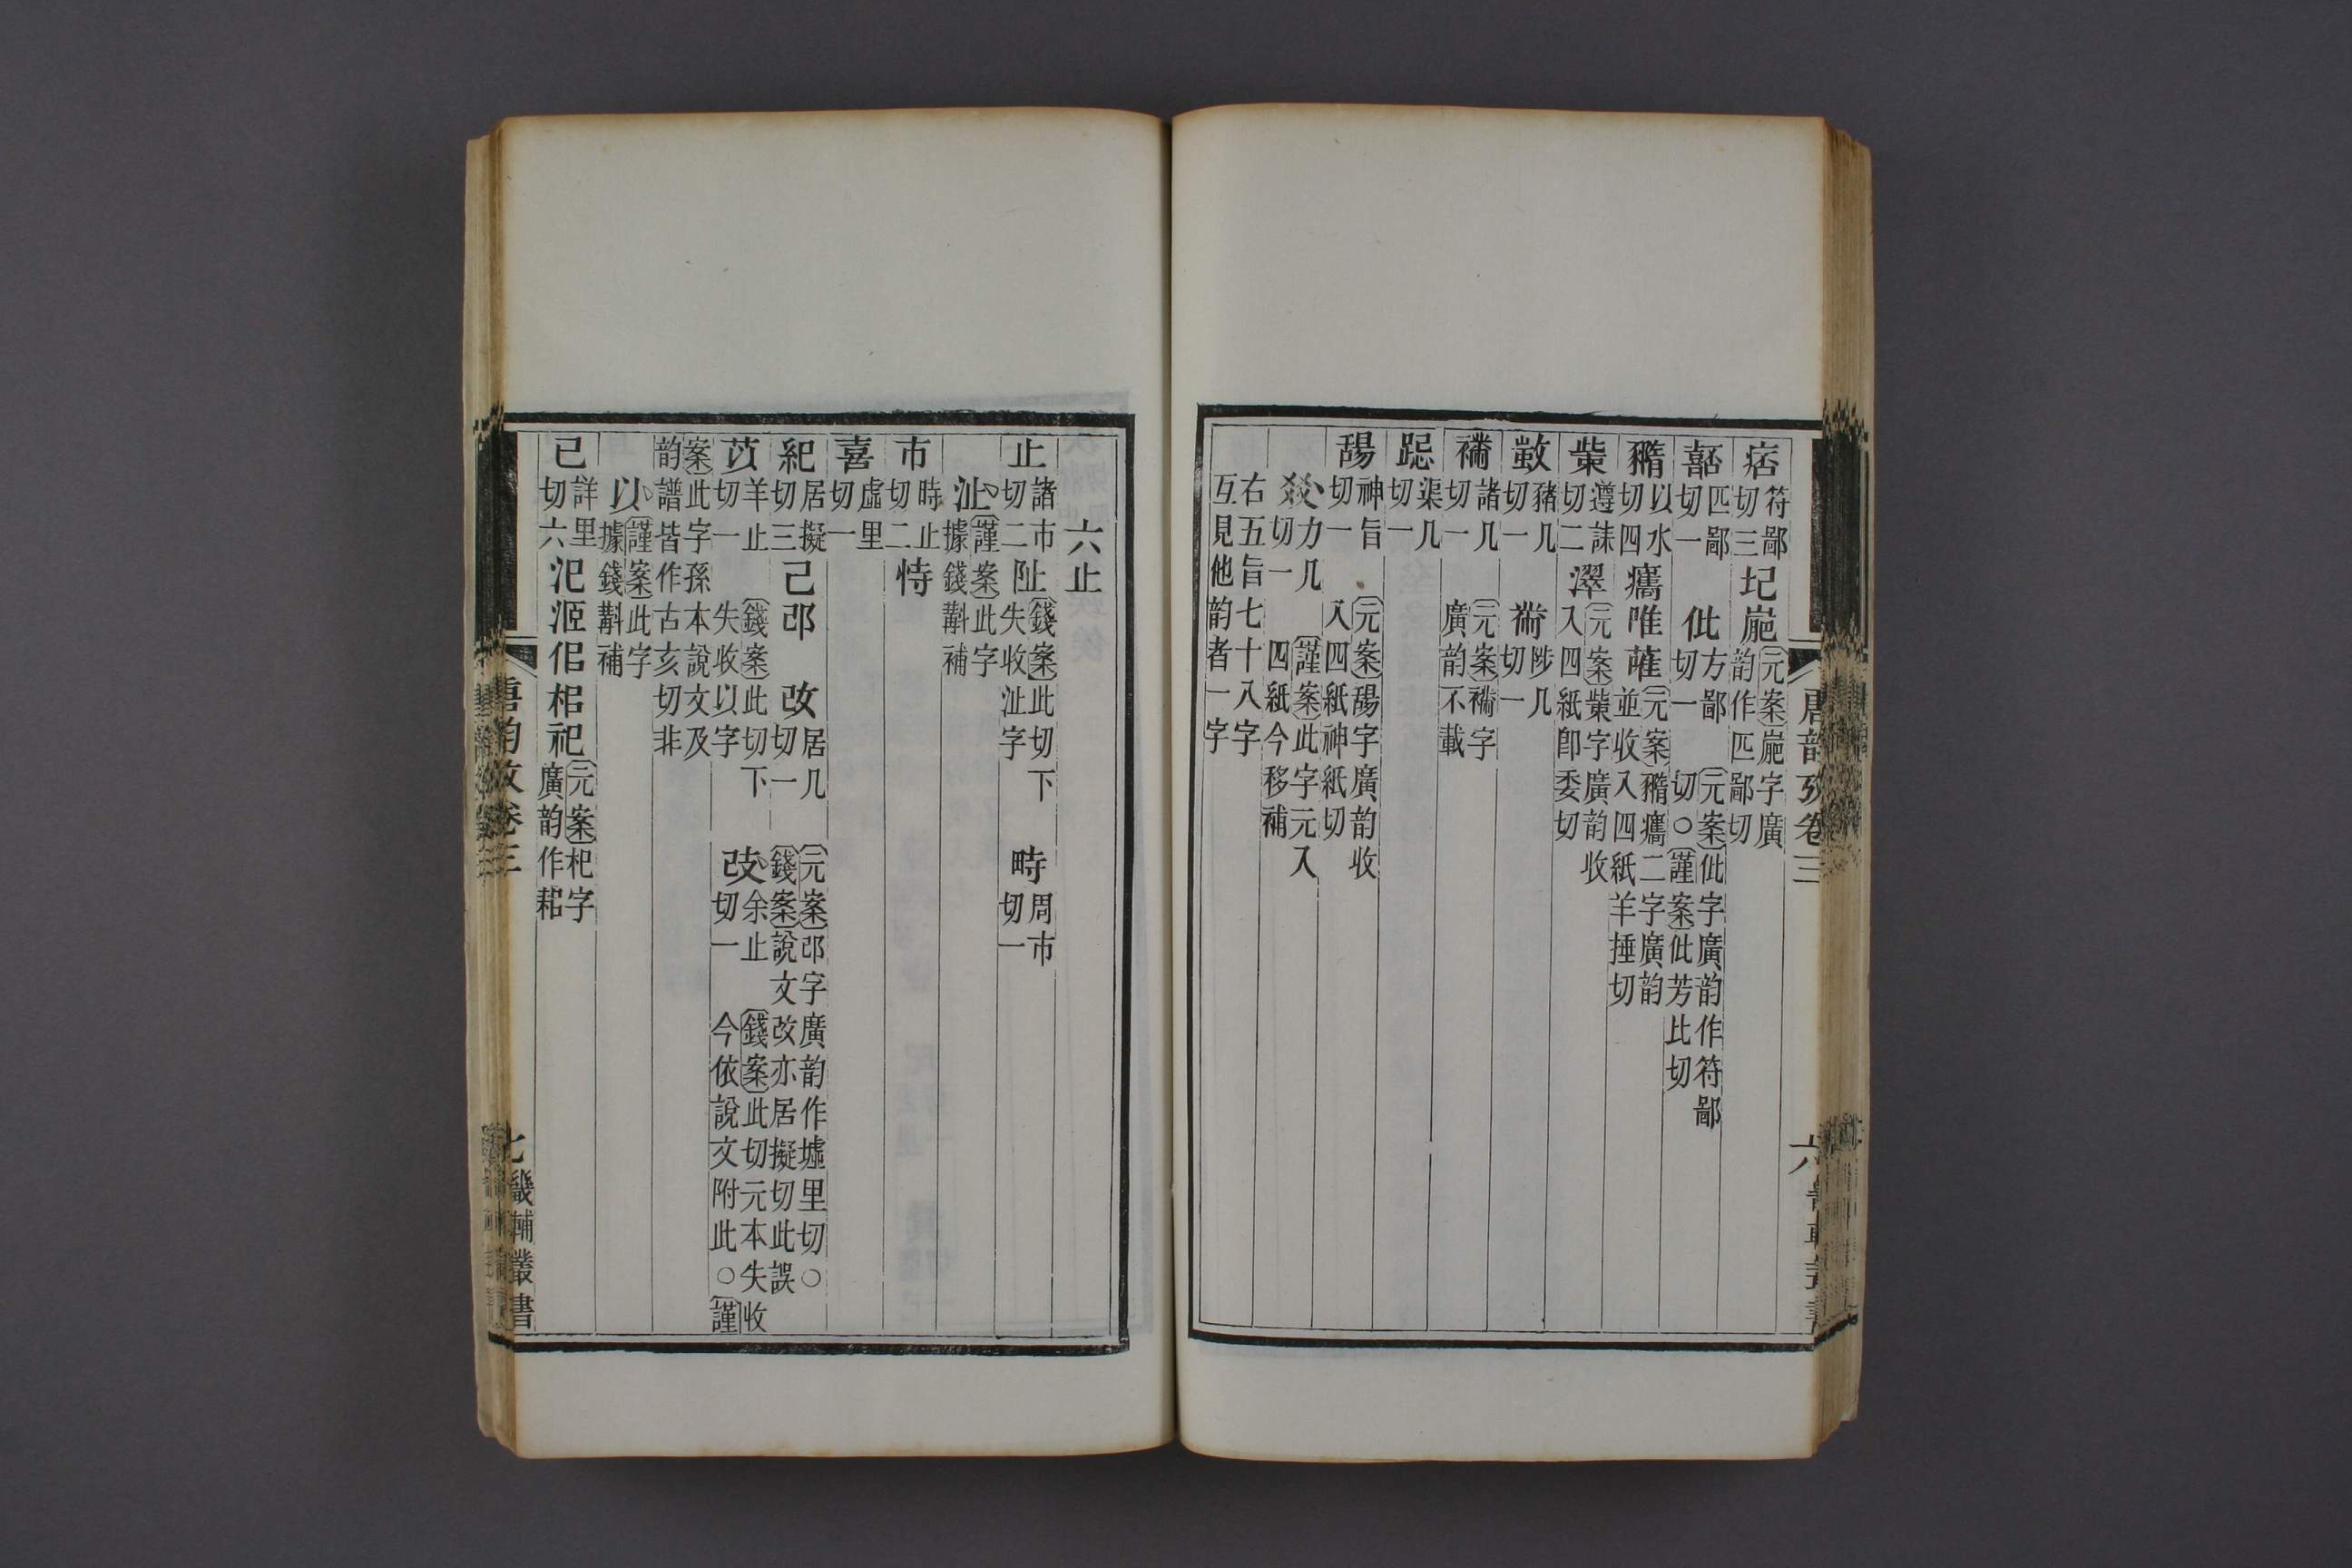 痞符鄙切三圮元案字廣
韵作匹鄙切
嚭匹鄙切一仳方鄙切一元案仳字廣韵作符鄙
切○謹案仳芳比切
以水切四唯蓶元案二字廣韵
並收入四紙羊捶切
遵誄切二濢元案字廣韵收
入四紙卽委切
豬几切一黹陟几切一
襧諸几切一元案襧字
廣韵不載
跽渠几切一
舓神旨切一元案舓字廣韵收
入四紙神紙切
力几切一謹案此字元入
四紙今移補
右五旨七十八字
互見他韵者一字
唐韵攷卷三
六
六止
止諸市切二阯錢案此切下
失收沚字畤周市切一
沚謹案此字
據錢斠補
市時止切二恃
喜虛里切一
紀居擬切三己改居几切一元案字廣韵作墟里切○
錢案說文改亦居擬切此誤
苡羊止切一錢案此切下
失收以字攺余止切一錢案此切元本失收
今依說文附此○謹
案此字孫本說文及
韵譜皆作古亥切非
以謹案此字
據錢斠補
已詳里切六汜洍侶梠祀元案杞字
廣韵作耜
唐韵攷卷三
七
畿輔叢書